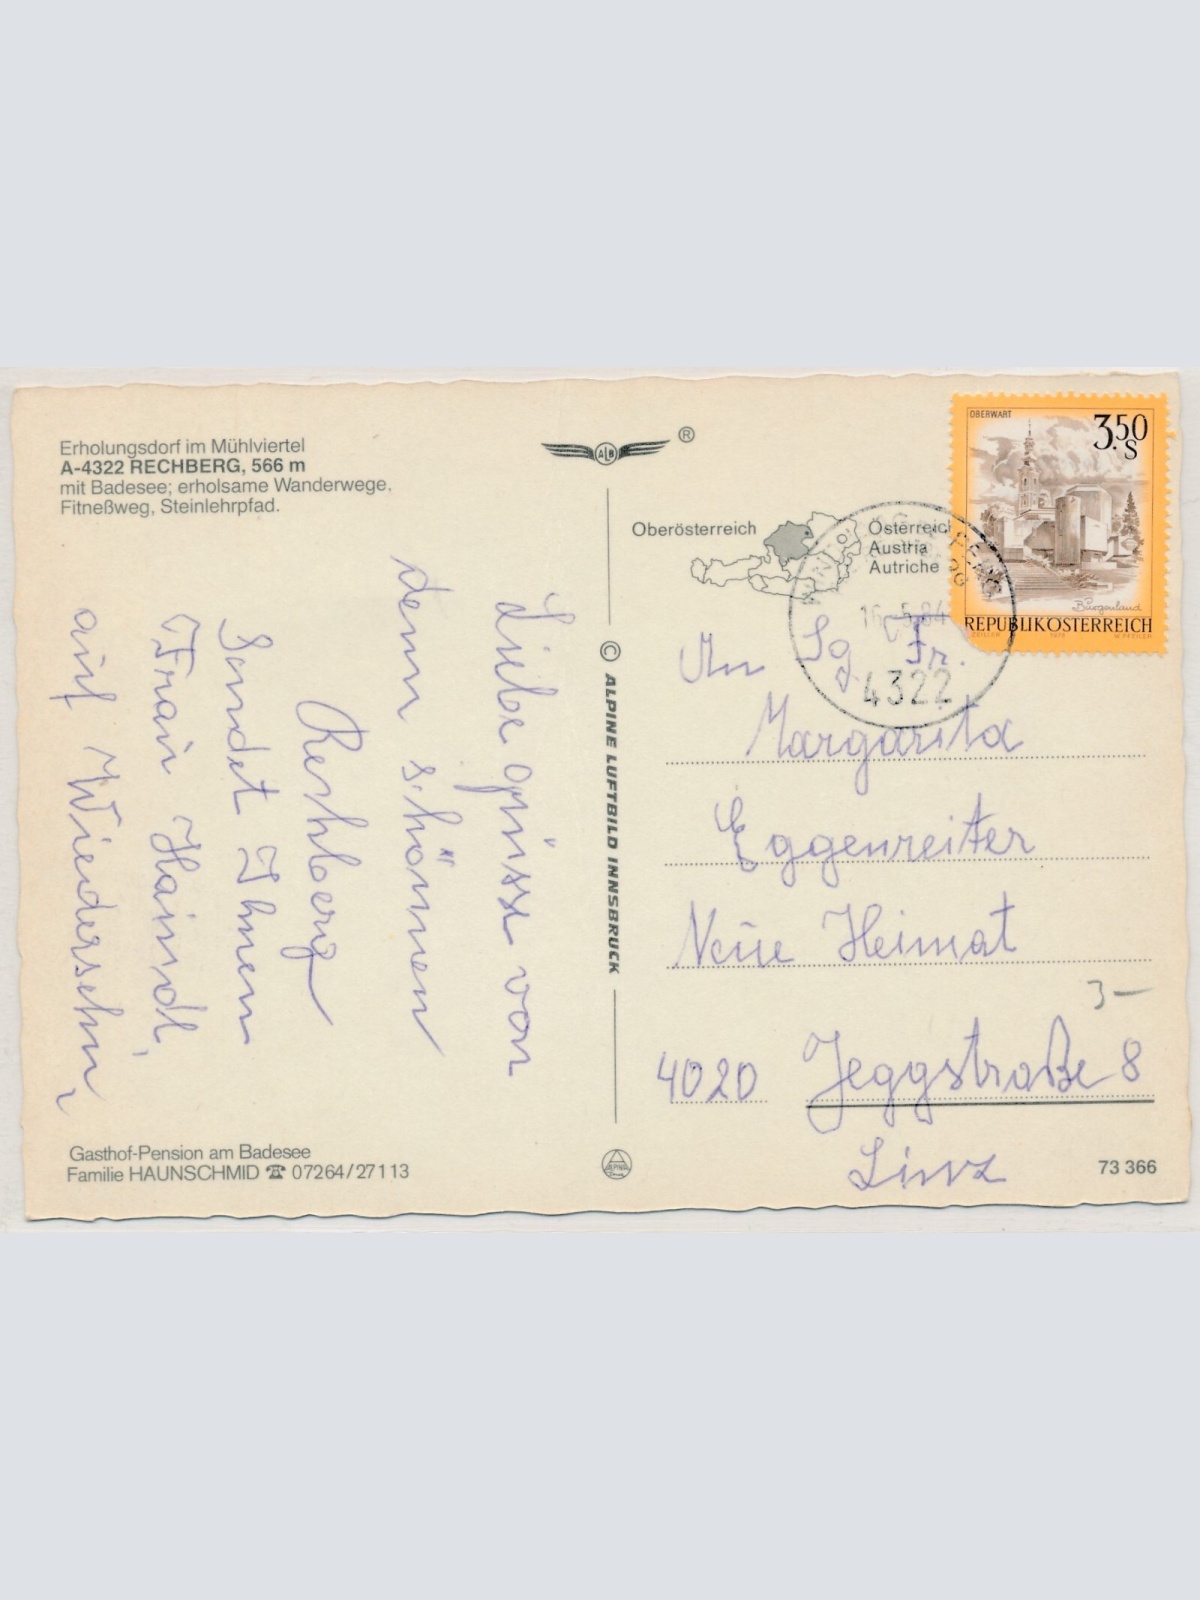 Erholungsdorf im Mühlviertel
A-4322 RECHBERG, 566 m
mit Badesee; erholsame Wanderwege,
Fitneßweg, Steinlehrpfad.
Liebe Grüsse von
dem schönen
Rechberg
Sendet Ihnen
Frau Haindl,
auf Wiedersehn,
Gasthof-Pension am Badesee
Familie HAUNSCHMID ☎ 07264/27113
ALB
®
© ALPINE LUFTBILD INNSBRUCK
ALPINE
Oberösterreich
Österreich
Austria
Autriche
OBERWART
3.50
S
Burgenland
REPUBLIK ÖSTERREICH
ZEILLER 1978 W. PFEILER
16.-5.84
4322
An Sg Fr.
Margarita
Eggenreiter
Neue Heimat
3–
4020 Jeggstraße 8
Linz
73 366